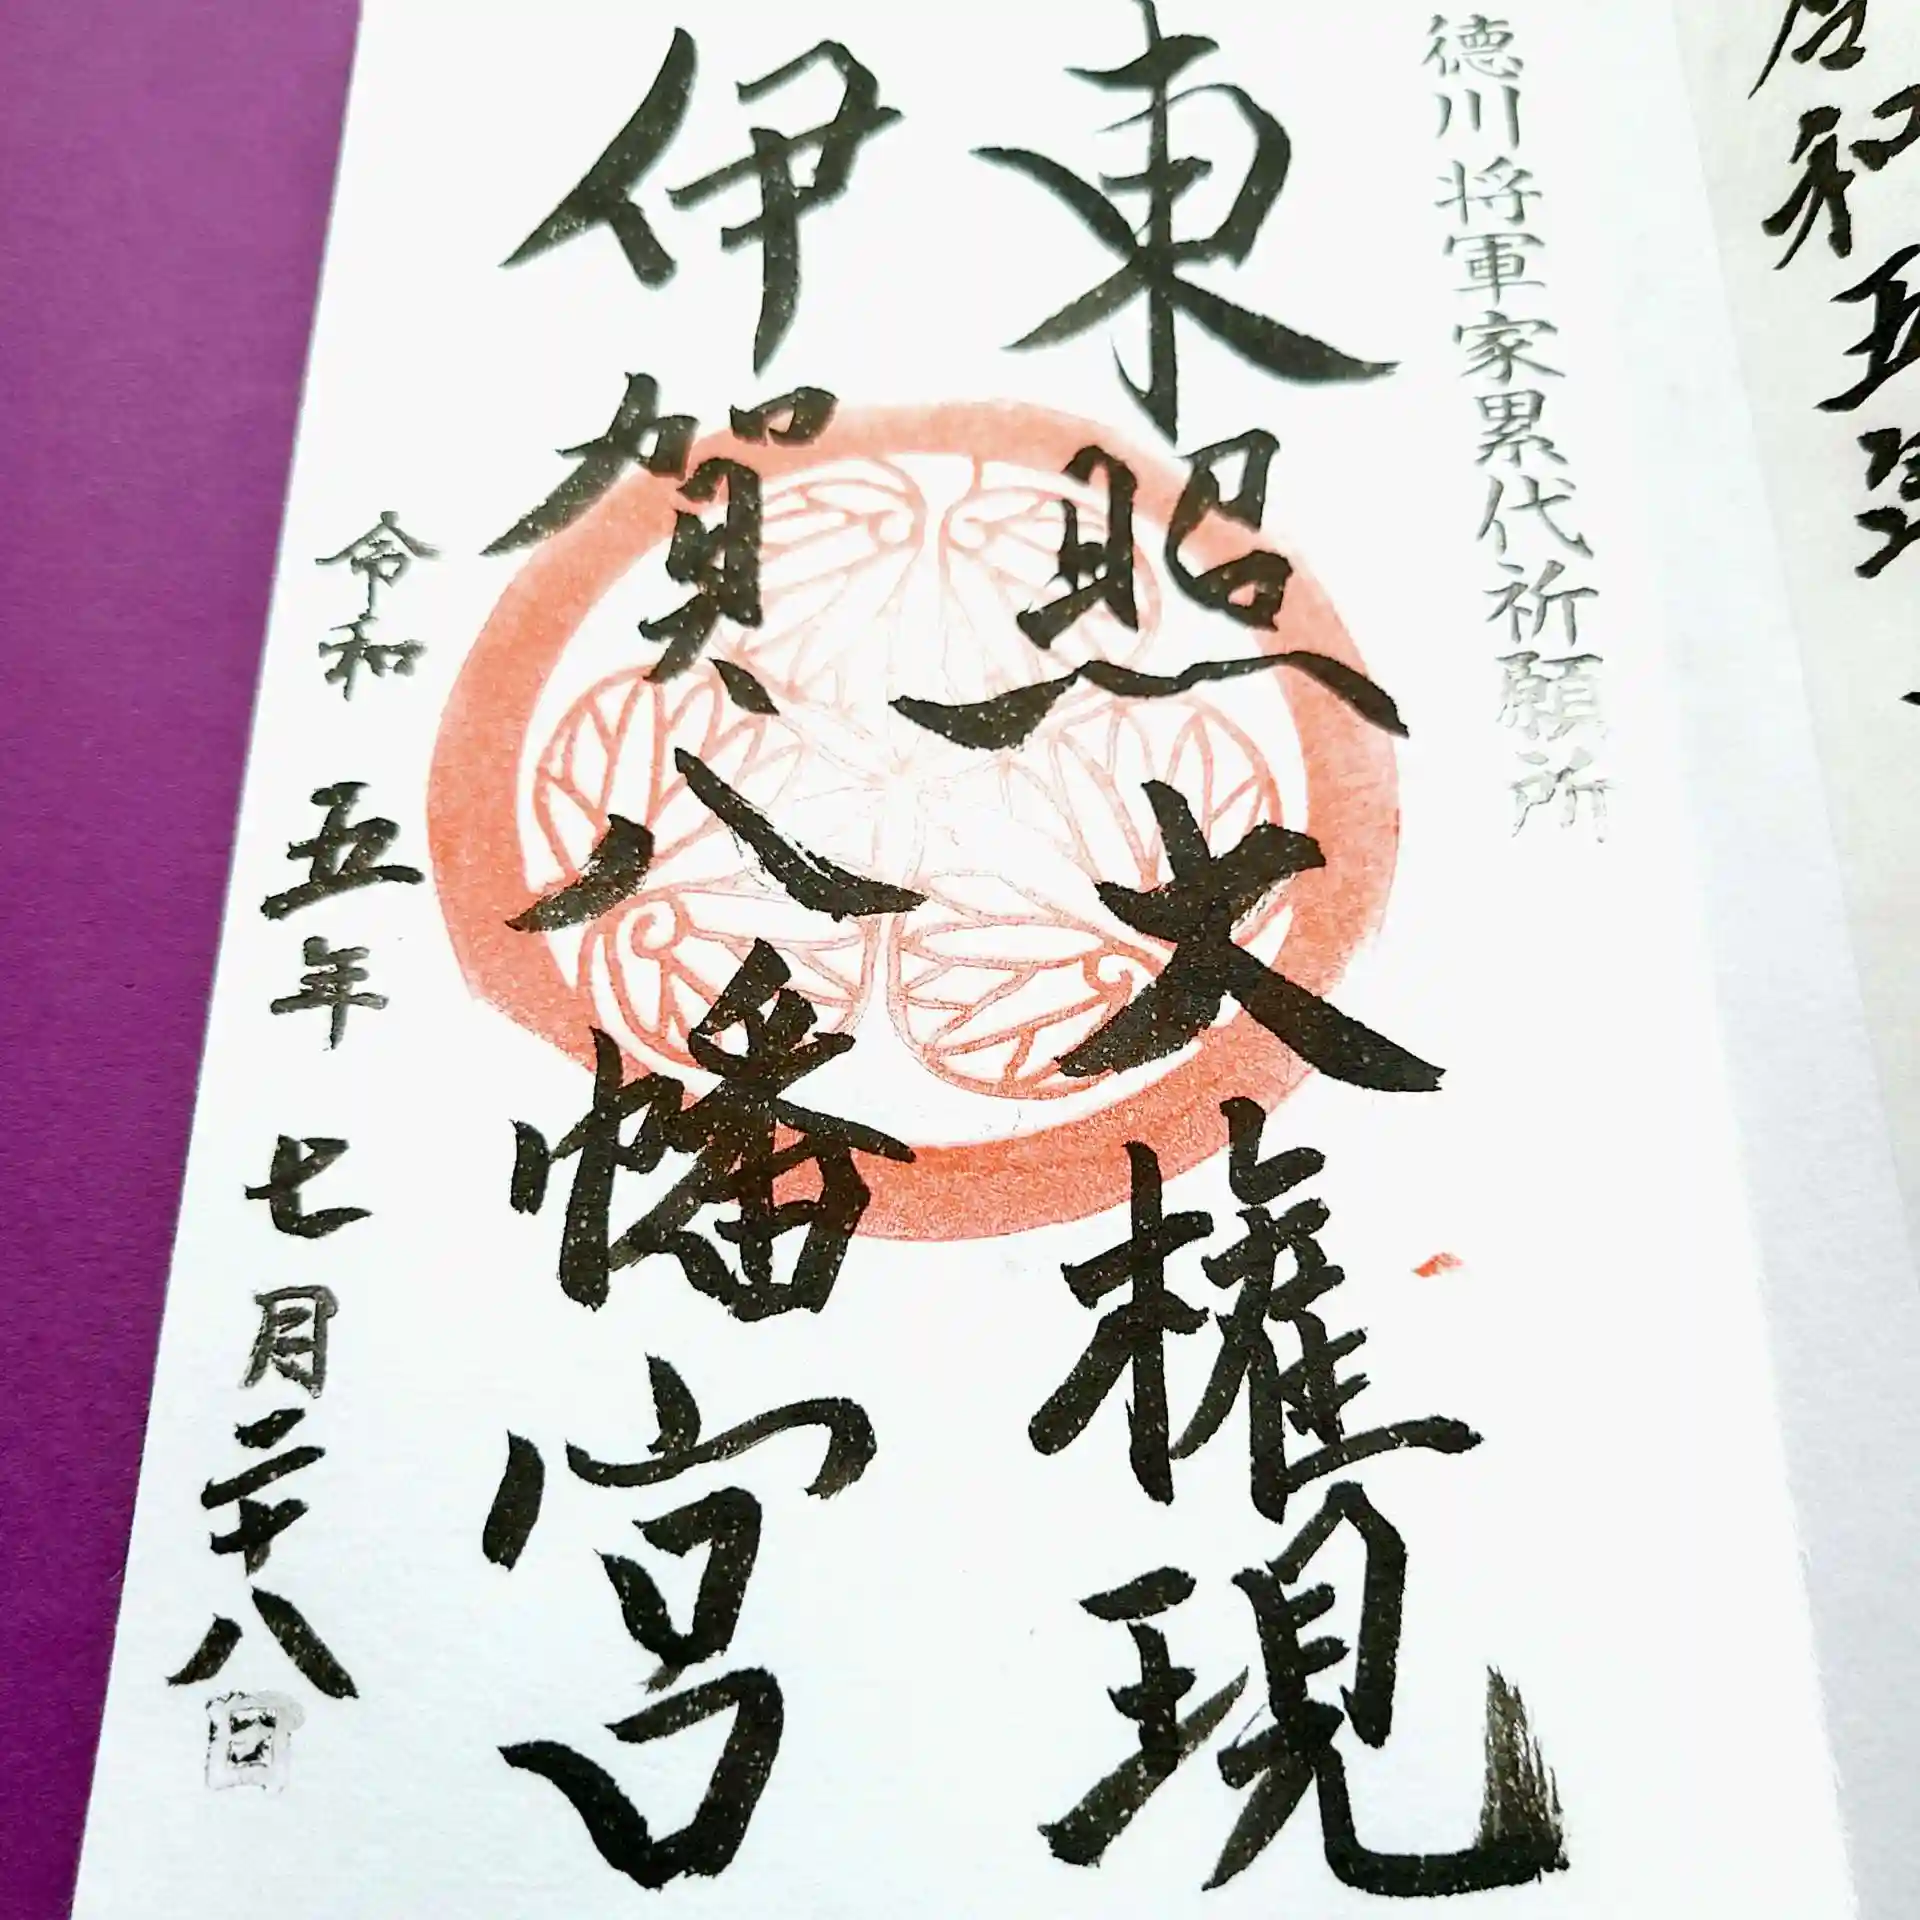 徳川将軍家累代祈願所
東照大権現
伊賀八幡宮
令和五年七月二十八日